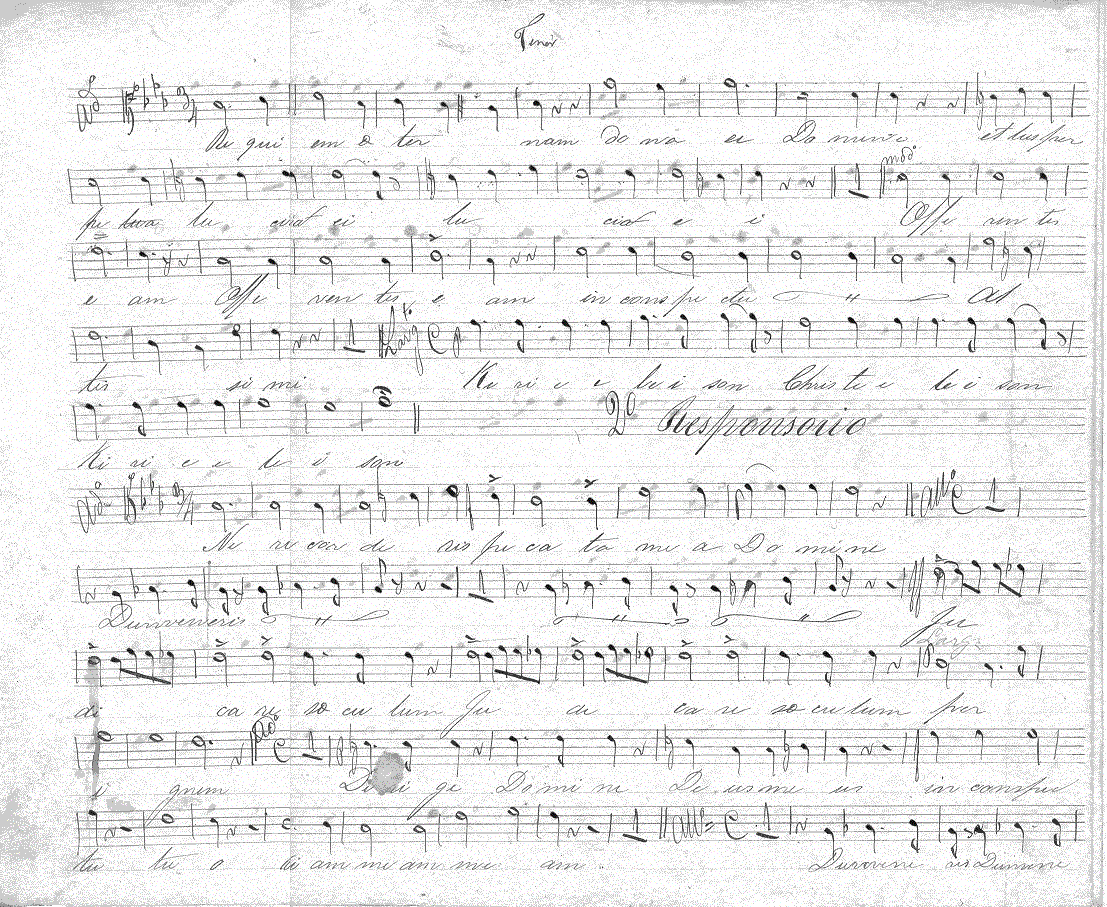 Tenor
Re qui em e ter nam do na ei Do mine et lus per
pe tua lu ciat ei lu ciat e i Offe ren tes
mod⁰
e am Offe ren tes e am in cons pe ctu Al
tis si mi Ki ri e e le i son Christe e le i son
Larg⁰
Ki ri e e le i son
2º Responsorio
And⁰
Ne re cor de ris pe ca ta me a Do mi ne
All⁰ C
Dumveneris Ju
Larg⁰
di ca re se cu lum Ju di ca re se cu lum per
i gnem Di ri ge Do mi ne De us me us in conspec
And⁰ C
tu tu o vi am me am me am.
All⁰ C